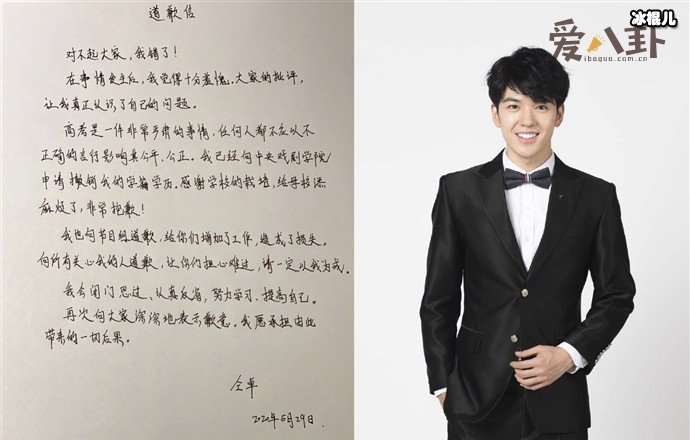 道歉信
对不起大家，我错了！
在事情发生后，我觉得十分羞愧。大家的批评，
让我真正认识了自己的问题。
高考是一件非常严肃的事情，任何人都不应以不
正确的言行影响其公平、公正。我已经向中央戏剧学院
申请撤销我的学籍学历。感谢学校的栽培，给母校添
麻烦了，非常抱歉！
我也向节目组道歉，给你们增加了工作，造成了损失。
向所有关心我的人道歉，让你们担心难过，请一定以我为戒。
我会闭门思过、认真反省，努力学习、提高自己。
再次向大家深深地表示歉意。我愿承担由此
带来的一切后果。
仝卓
2020年5月29日
冰棍儿
爱八卦
ibagua.com.cn